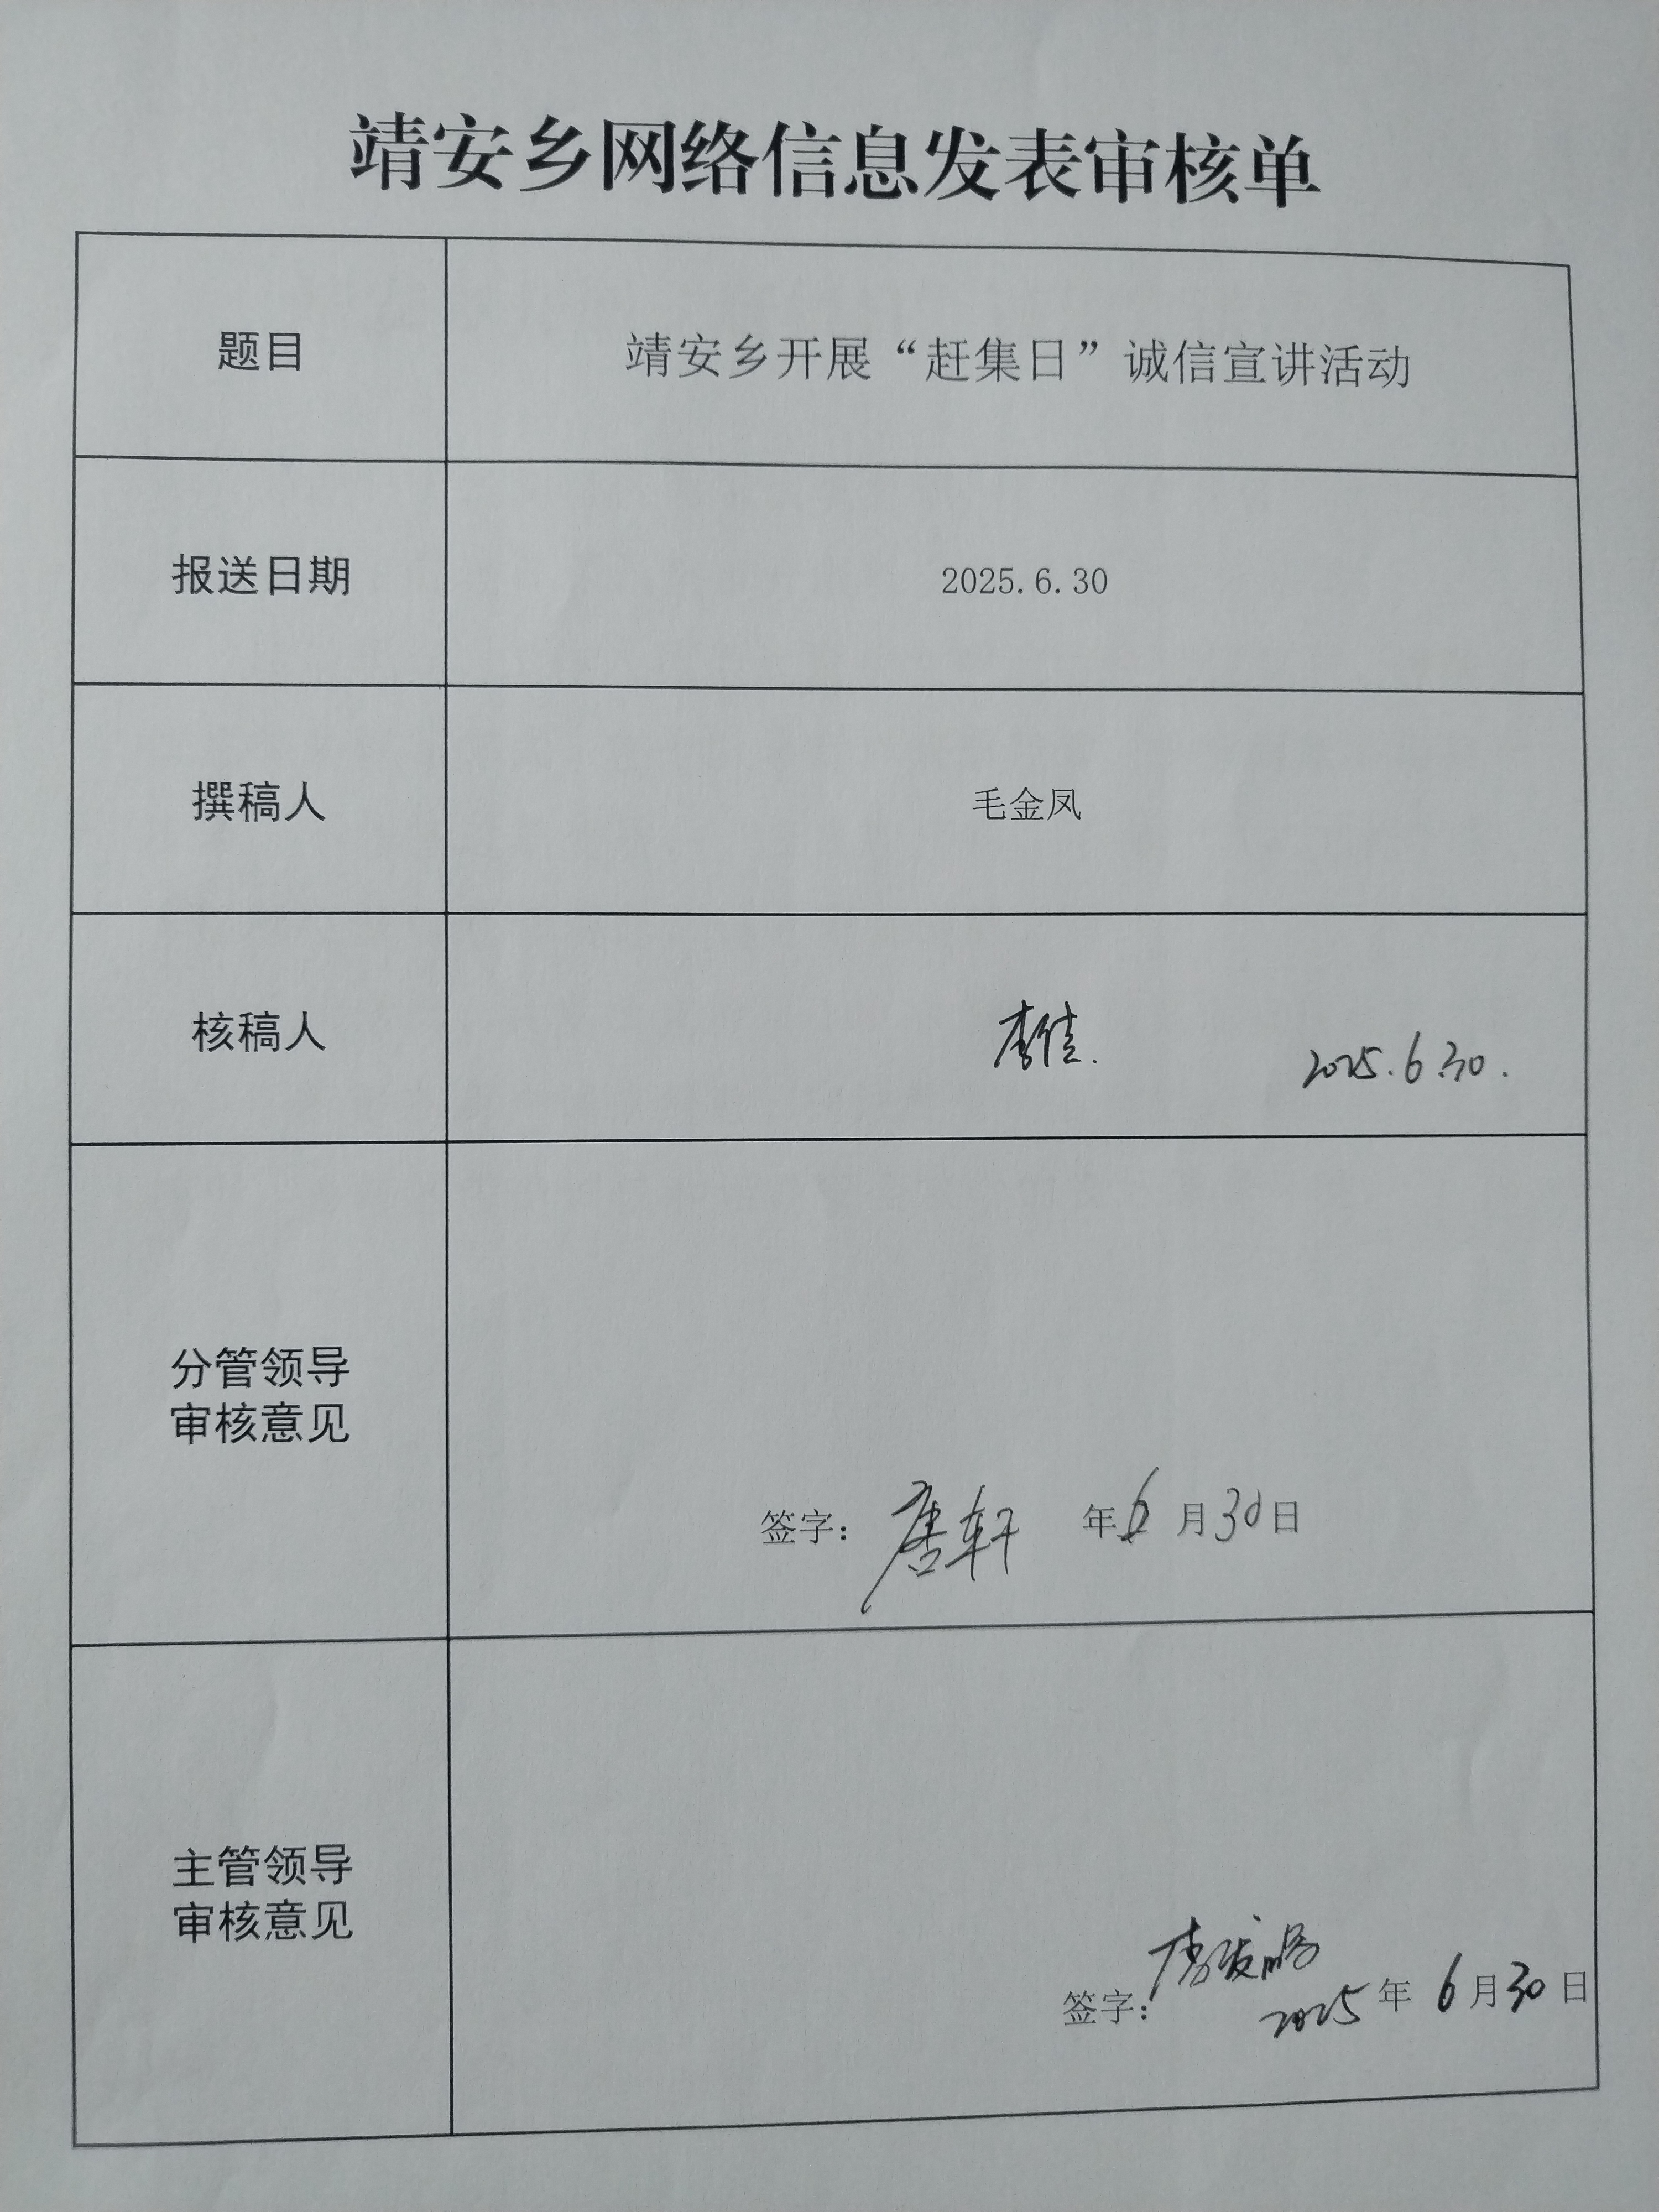 靖安乡网络信息发表审核单
题目
靖安乡开展“赶集日”诚信宣讲活动
报送日期
2025.6.30
撰稿人
毛金凤
核稿人
李佳.
2025.6.30.
分管领导
审核意见
签字：唐轩 年6月30日
主管领导
审核意见
签字：
2025年6月30日